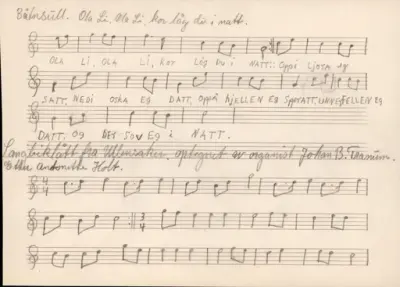 Bånsull. Ola Li, Ola Li, kor låg du i natt.
OLA LI, OLA LI, KOR LÅG DU I NATT: OPPI LJOTA EG
SATT, NEDI OSKA EG DATT, OPPÅ HJELLEN EG SPRATT, UNDE FELLEN EG
DATT, OG DER SOV EG I NATT.
fra Ullensaker, optegnet av organist Johan B.
Holt.
4/4
3/4